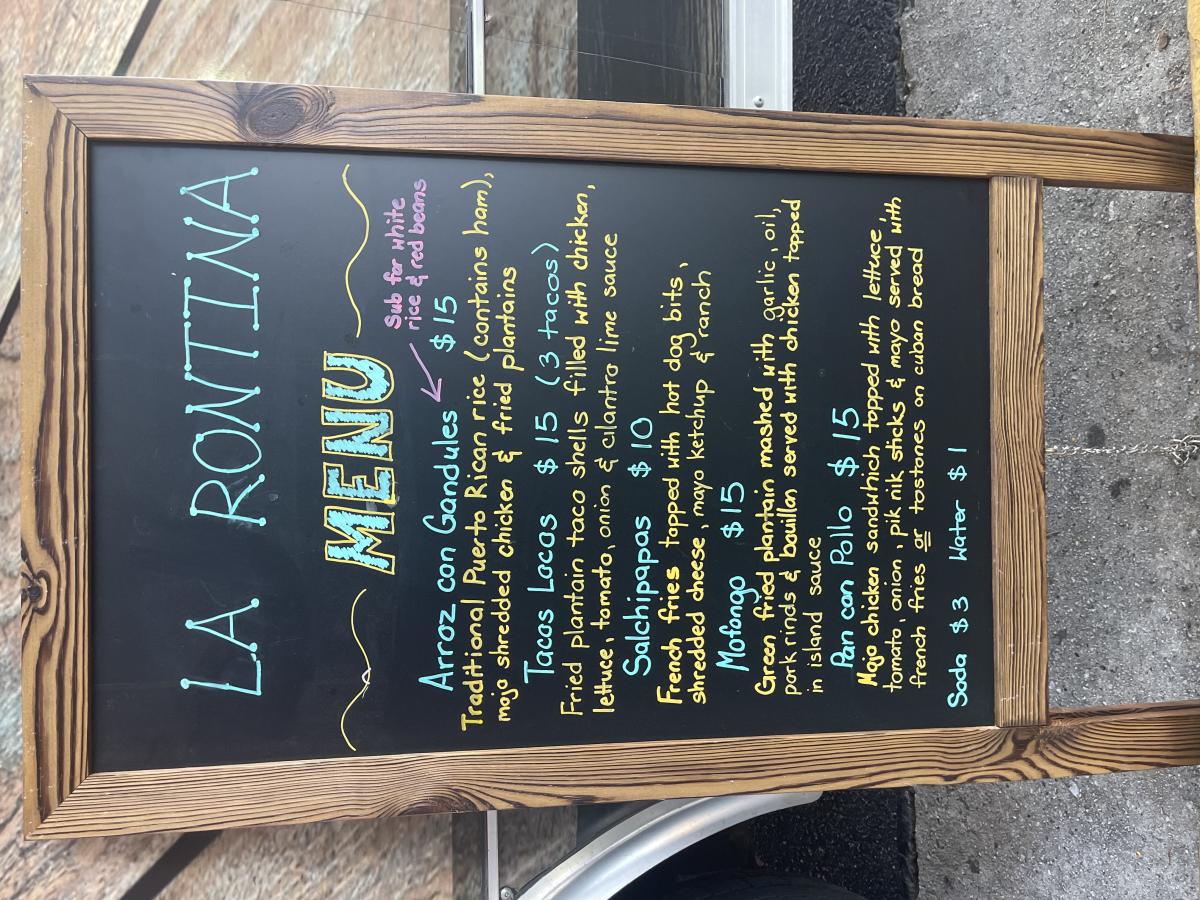 LA RONTINA
MENU
Sub for white
rice & red beans
Arroz con Gandules $15
Traditional Puerto Rican rice (contains ham),
mojo shredded chicken & fried plantains
Tacos Locos $15 (3 tacos)
Fried plantain taco shells filled with chicken,
lettuce, tomato, onion & cilantro lime sauce
Salchipapas $10
French fries topped with hot dog bits,
shredded cheese, mayo ketchup & ranch
Mofongo $15
Green fried plantain mashed with garlic, oil,
pork rinds & bouillon served with chicken topped
in island sauce
Pan con Pollo $15
Mojo chicken sandwhich topped with lettuce,
tomato, onion, pik nik sticks & mayo served with
french fries or tostones on cuban bread
Soda $3 Water $1